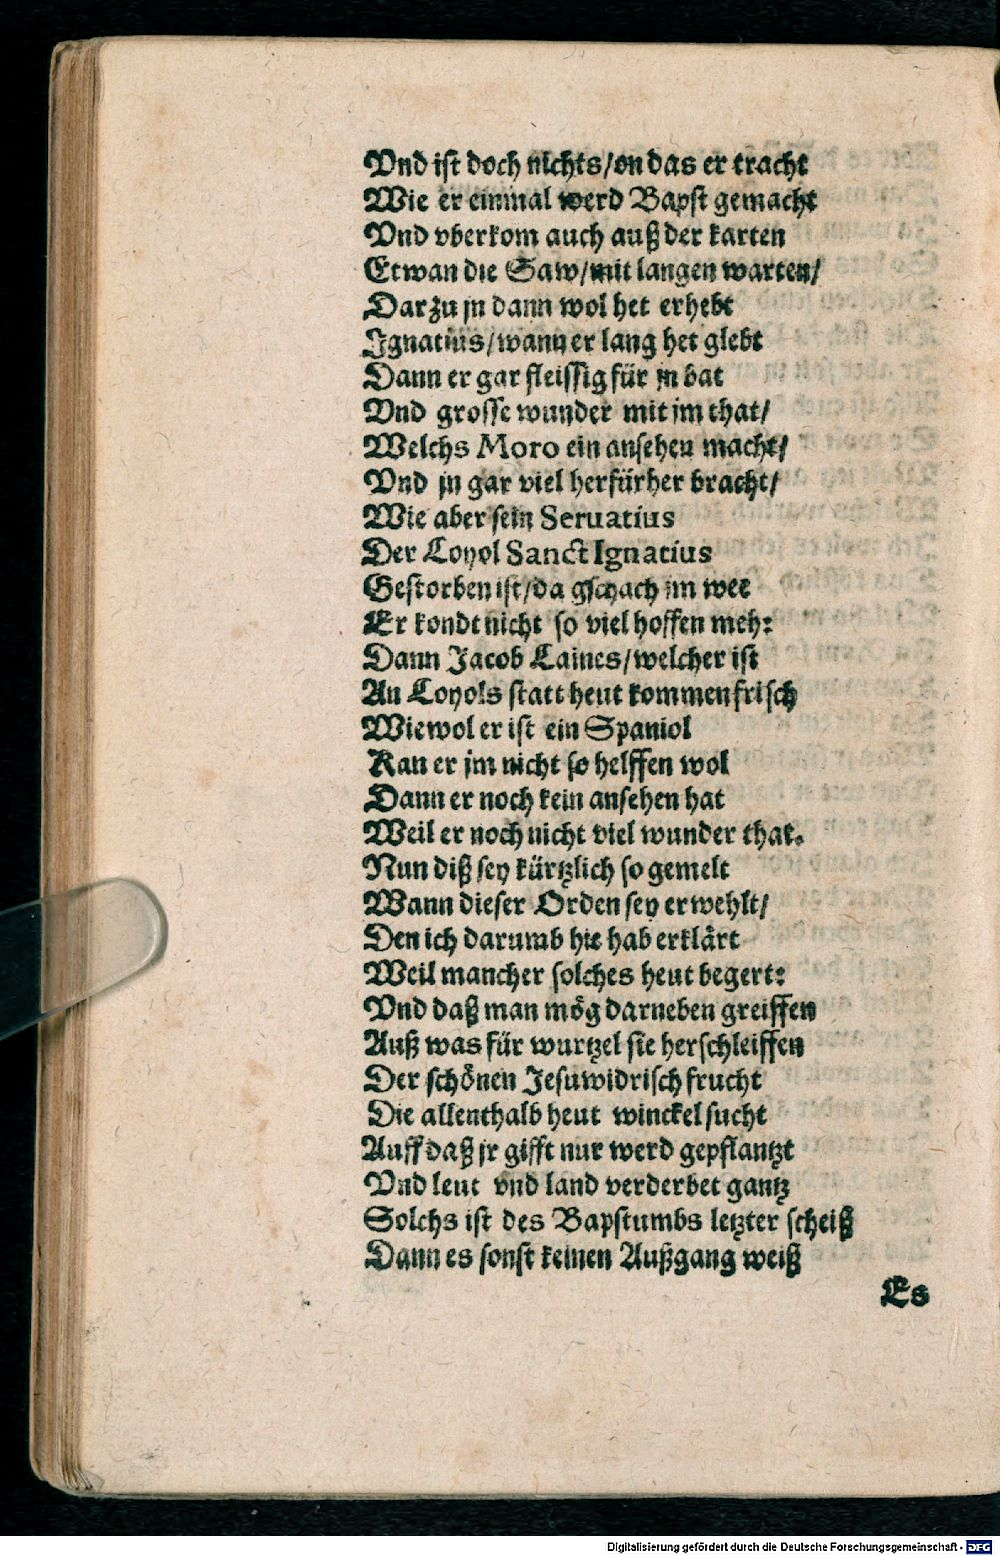 Vnd ist doch nichts/on das er tracht
Wie er einmal werd Bapst gemacht
Vnd vberkom auch auß der karten
Etwan die Saw/mit langen warten/
Darzu jn dann wol het erhebt
Ignatius/wann er lang het glebt
Dann er gar fleissig für jn bat
Vnd grosse wunder mit jm that/
Welchs Moro ein ansehen macht/
Vnd jn gar viel herfürher bracht/
Wie aber sein Seruatius
Der Loyol Sanct Ignatius
Gestorben ist/da gschach jm wee
Er kondt nicht so viel hoffen meh:
Dann Jacob Laines/welcher ist
An Loyols statt heut kommen frisch
Wiewol er ist ein Spaniol
Kan er jm nicht so helffen wol
Dann er noch kein ansehen hat
Weil er noch nicht viel wunder that.
Nun diß sey kürtzlich so gemelt
Wann dieser Orden sey erwehlt/
Den ich darumb hie hab erklärt
Weil mancher solches heut begert:
Vnd daß man mög darneben greiffen
Auß was für wurtzel sie herschleiffen
Der schönen Jesuwidrisch frucht
Die allenthalb heut winckel sucht
Auff daß jr gifft nur werd gepflantzt
Vnd leut vnd land verderbet gantz
Solchs ist des Bapstumbs letzter scheiß
Dann es sonst keinen Außgang weiß
Es
Digitalisierung gefördert durch die Deutsche Forschungsgemeinschaft - DFG